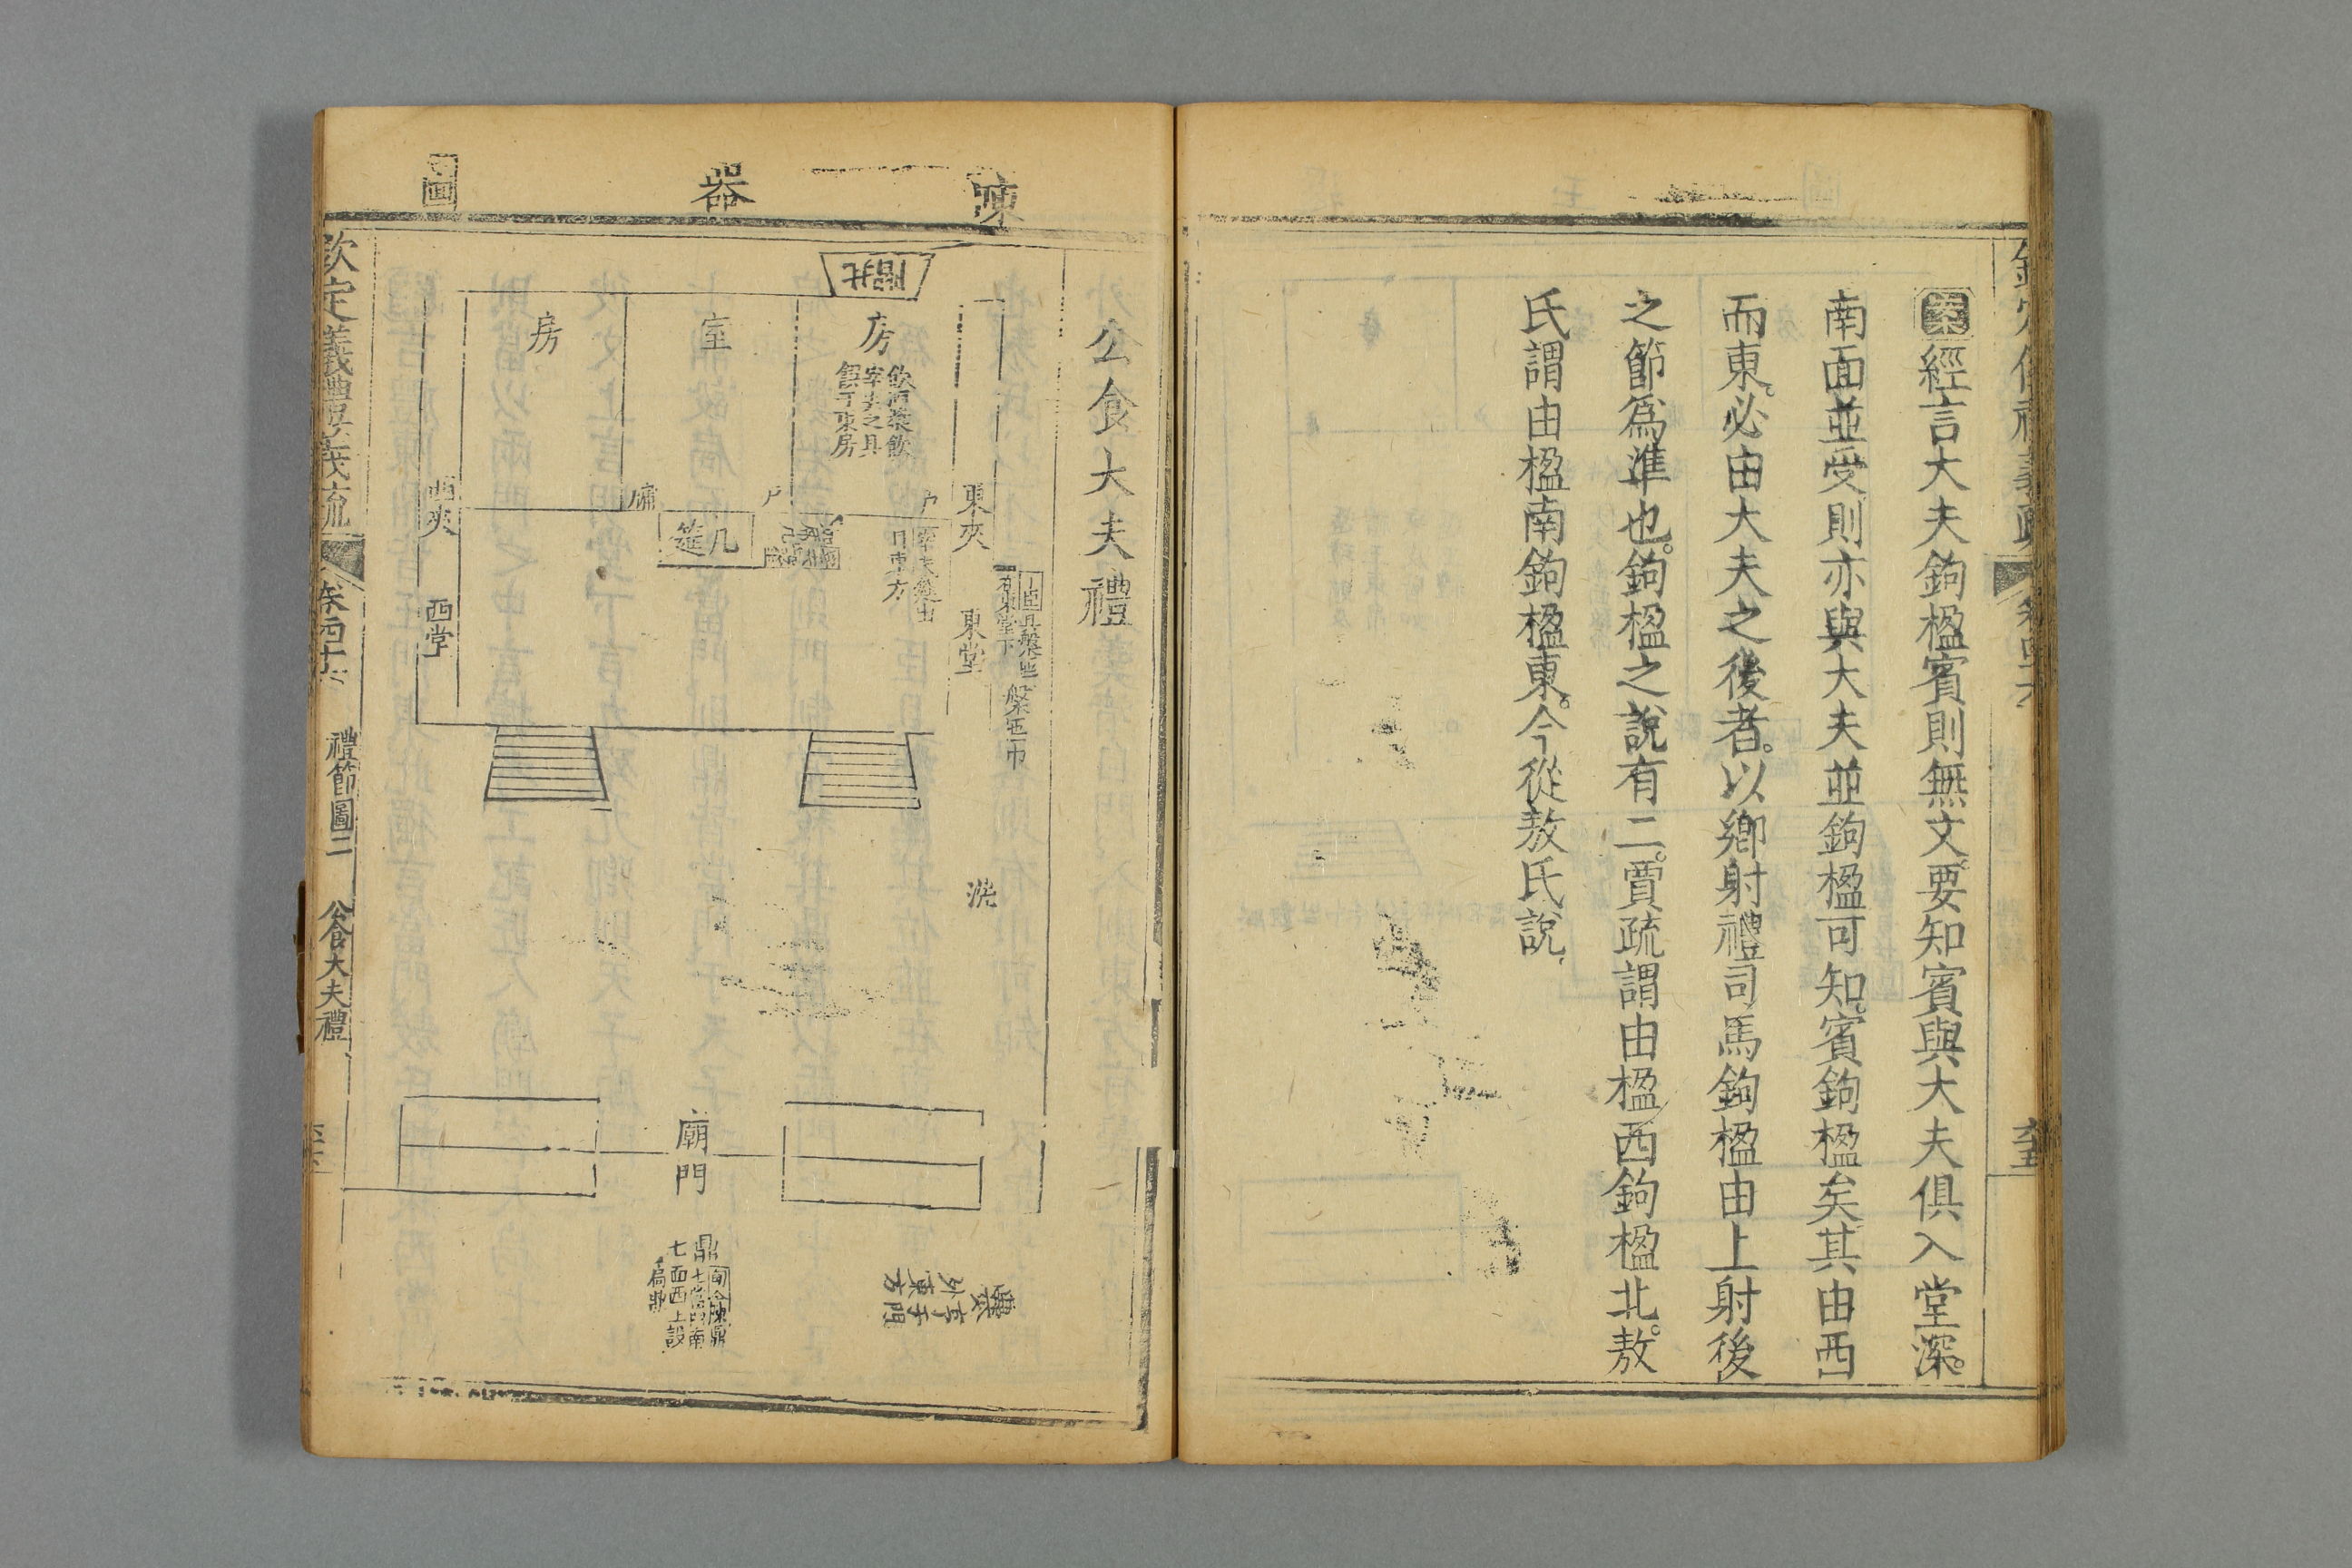 案經言大夫鉤楹賓則無文要知賓與大夫俱入堂深。
南面並受則亦與大夫並鉤楹可知。賓鉤楹矣其由西
而東。必由大夫之後者。以鄉射禮司馬鉤楹由上射後
之節爲準也。鉤楹之說有二。賈疏謂由楹西鉤楹北。敖
氏謂由楹南鉤楹東。今從敖氏說
陳
器
圖
公食大夫禮
北
房
飲酒漿飲
宰夫之具
饌于東房
室
房
戶
戶
牖
東夾
西夾
几
筵
東堂
西堂
槃匜巾
洗
廟門
鼎
七
扃鼏
欽定義禮義疏
禮節圖二
公食大夫禮